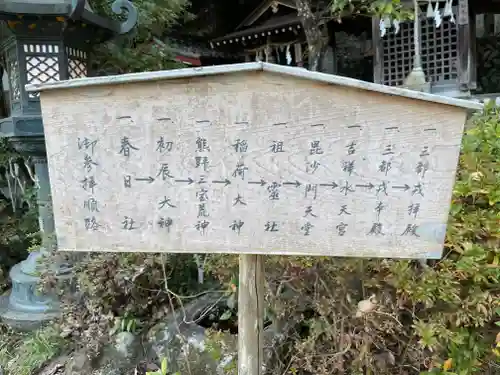 御参拝順路
一 春日社
→
一 初辰大神
→
一 熊野三宝荒神
→
一 稲荷大神
→
一 祖霊社
→
一 毘沙門天堂
→
一 吉祥水天宮
→
一 三部戌本殿
→
一 三部戌拝殿